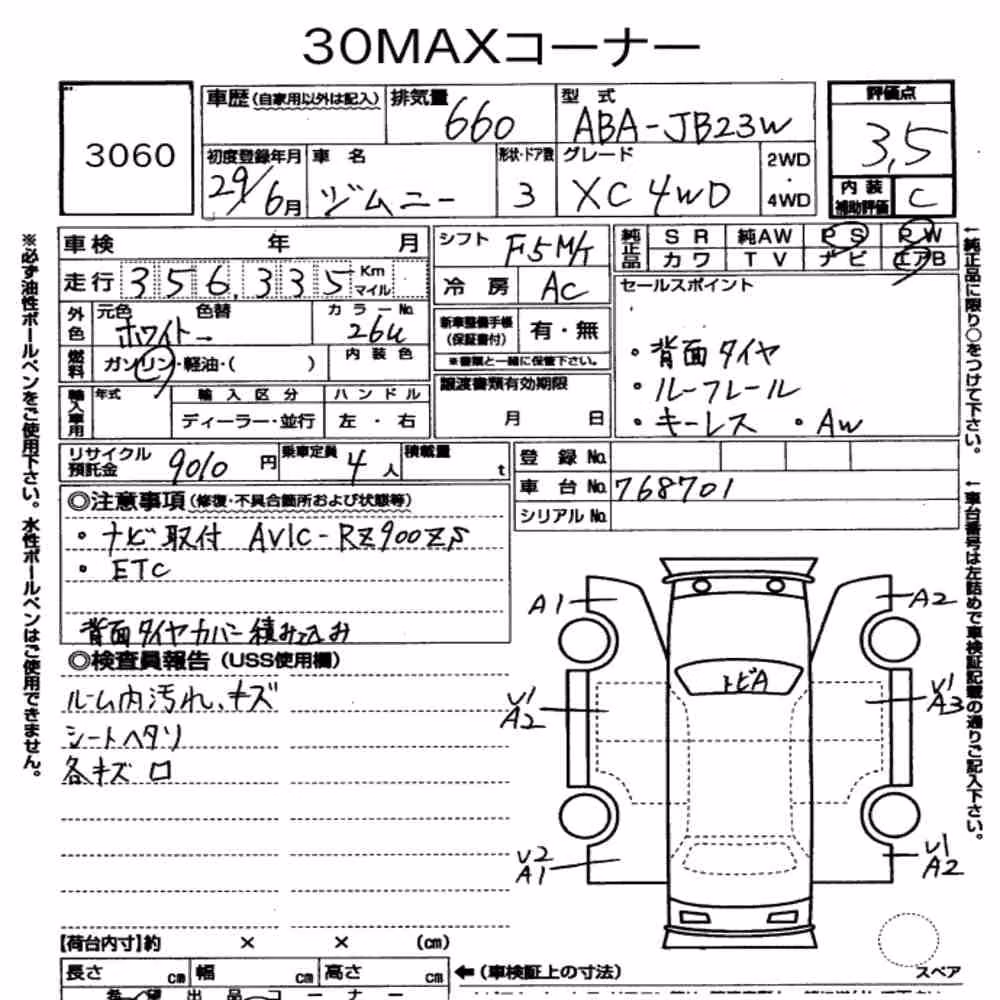 30MAXコーナー
3060
車歴(自家用以外は記入) 排気量 660 型式 ABA-JB23W 評価点 3,5
初度登録年月 29/6月 車名 ジムニー 形状・ドア数 3 グレード XC 4WD 2WD・4WD 内装補助評価 C
車検 年 月 シフト F5M/T 純正品 SR 純AW PS PW
カワ TV ナビ エアB
走行 356,335 Km マイル 冷房 AC セールスポイント
外色 元色 色替 カラーNo. 26U
ホワイト→
新車整備手帳(保証書付) 有・無
※書類と一緒に保管下さい。
・背面タイヤ
・ルーフレール
・キーレス ・AW
燃料 ガソリン・軽油・( ) 内装色
譲渡書類有効期限
月 日
輸入車用 年式 輸入区分 ハンドル
ディーラー・並行 左・右
リサイクル預託金 9010円 乗車定員 4人 積載量 t 登録No.
車台No. 768701
シリアルNo.
◎注意事項(修復・不具合箇所および状態等)
・ナビ取付 AVIC-RZ900ZS
・ETC
背面タイヤカバー積みっ込み
◎検査員報告(USS使用欄)
ルーム内汚れ、キズ
シートヘタリ
各キズ ロ
A1
A2
トビA
U1
A2
U1
A3
U2
A1
U1
A2
【荷台内寸】約 × × (cm)
長さ cm 幅 cm 高さ cm ←(車検証上の寸法)
スペア
希望出品コーナー
※必ず油性ボールペンをご使用下さい。水性ボールペンはご使用できません。
←純正品に限り○をつけて下さい。
←車台番号は左詰めで車検証記載の通りご記入下さい。